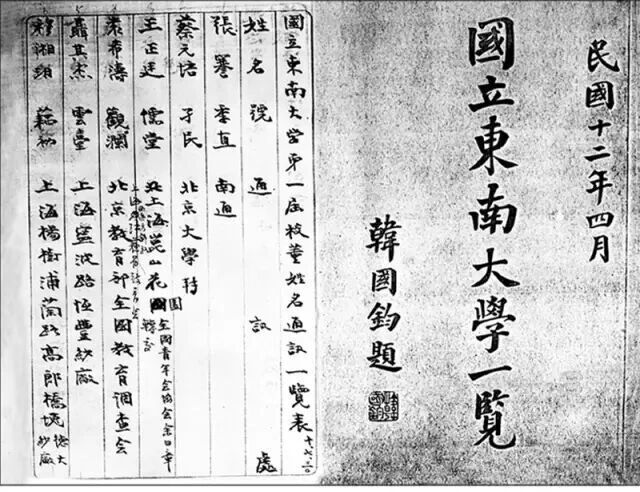 民國十二年四月
國立東南大學一覽
韓國鈞題
國立東南大学第一屆校董姓名通訊一覽表
姓名 號 通訊處
張謇 季直 南通
蔡元培 孑民 北京大學轉
王正廷 儒堂 上海崑山花園 全國青年会協会余日章轉交
袁希濤 觀瀾 北京教育部全國教育調查会
聶其杰 雲臺 上海寧波路恆豐紗廠
穆湘玥 藕初 上海楊樹浦蘭路高郎橋堍德大紗廠